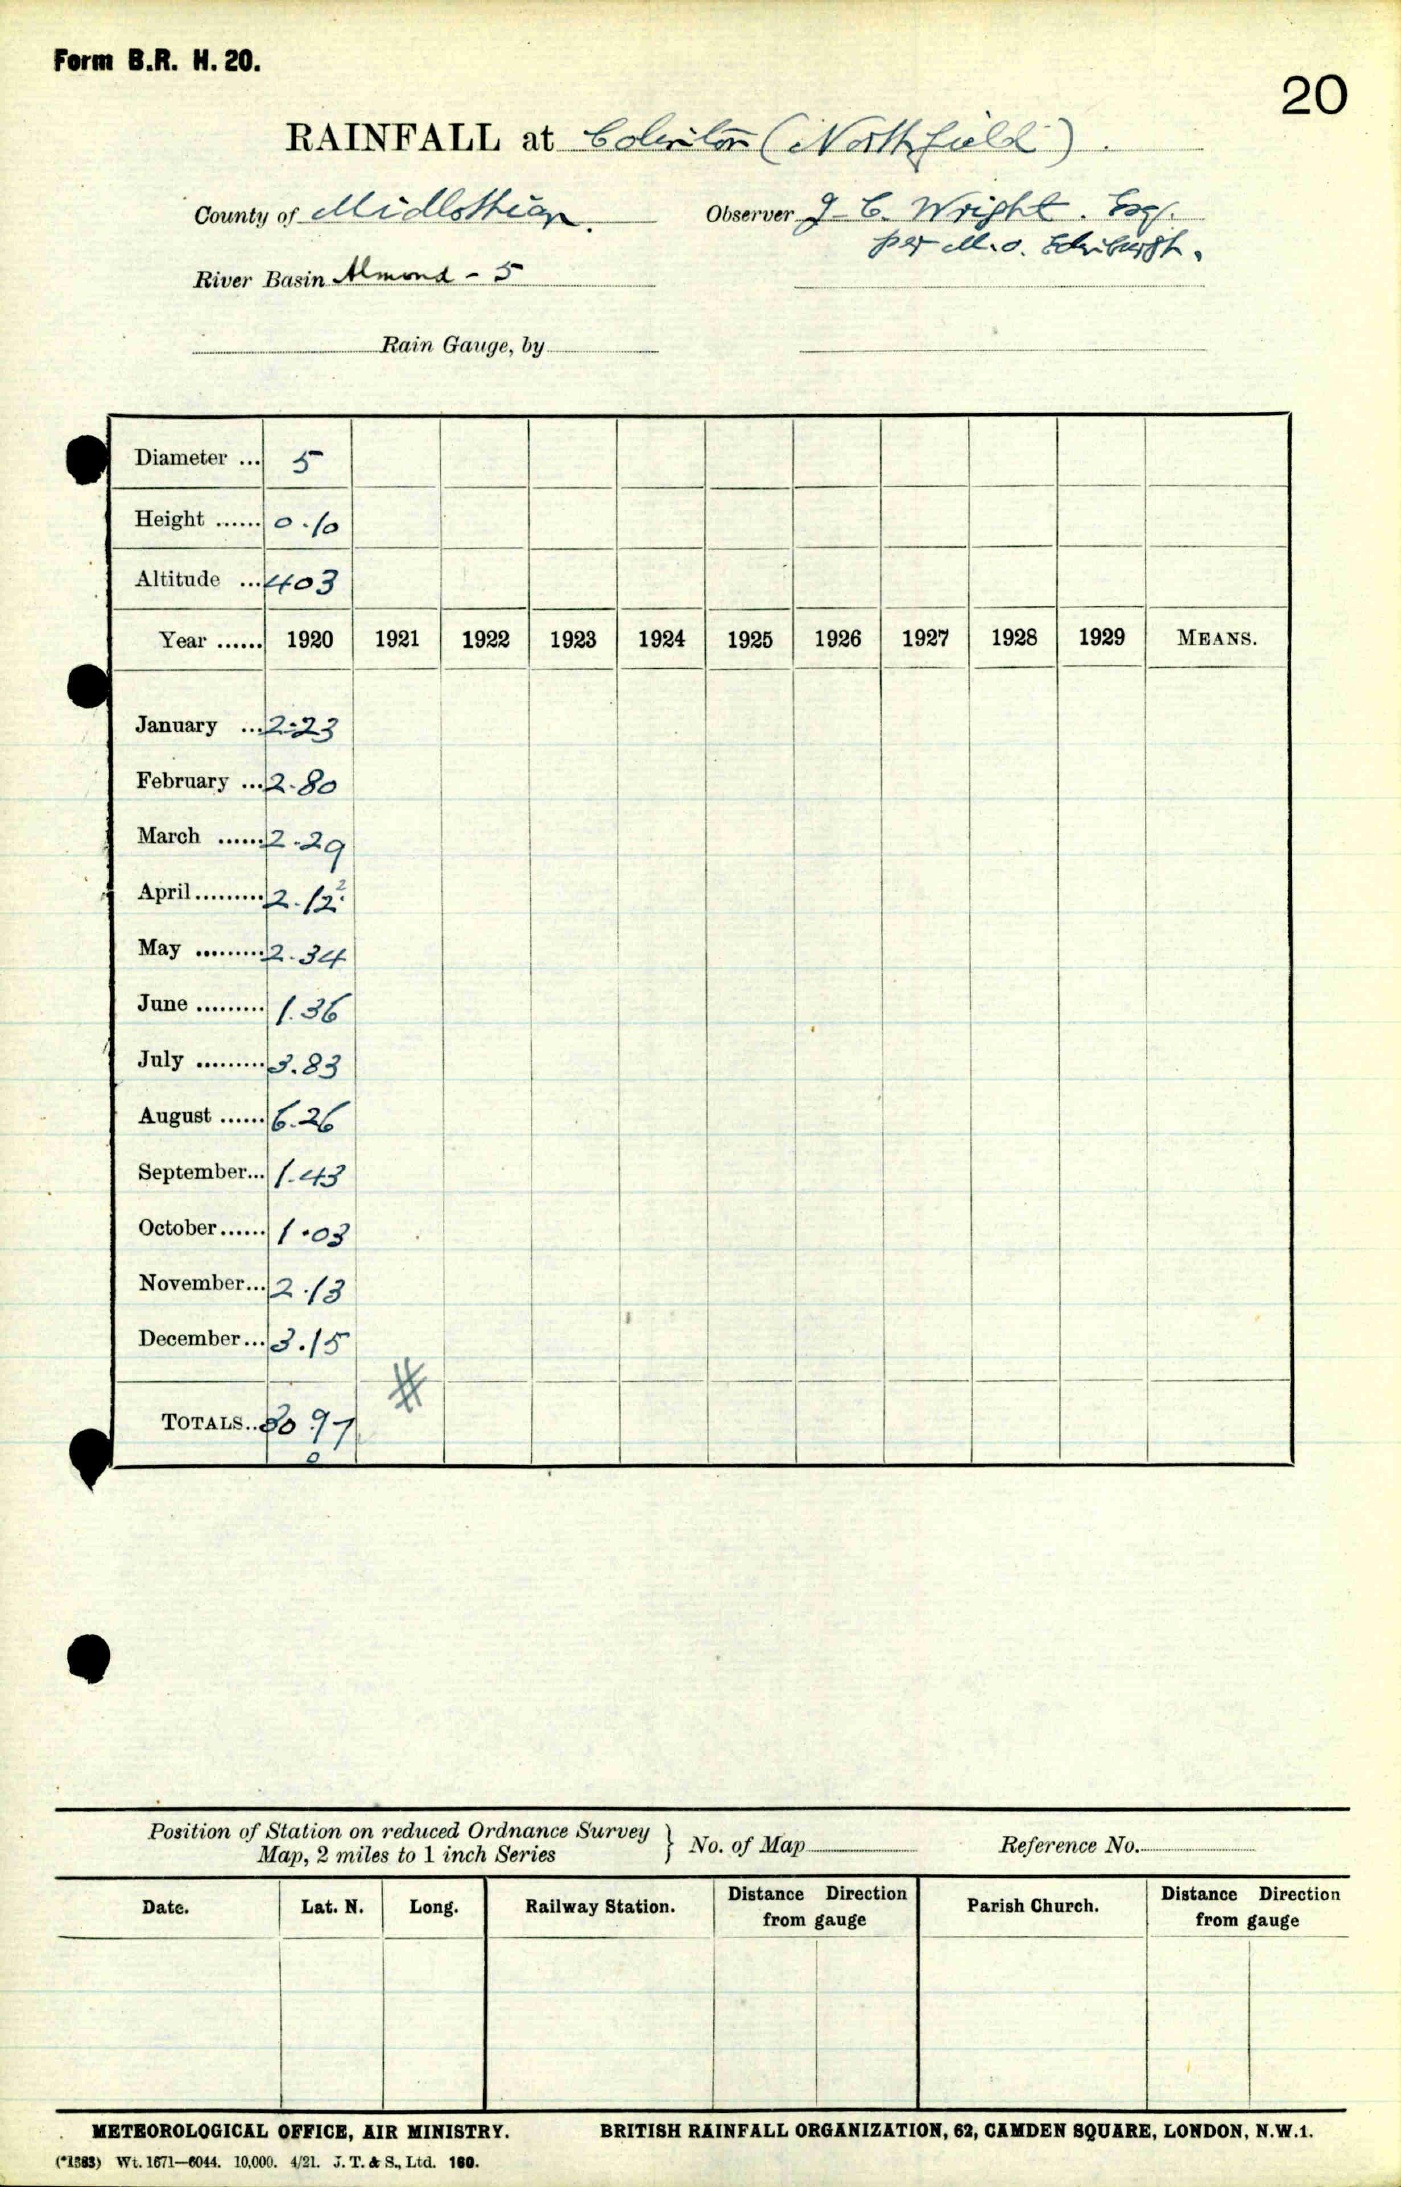 Form B.R. H. 20.
20
RAINFALL at Colinton (Northfield).
County of Midlothian. Observer J. C. Wright. Esq.
per M.O. Edinburgh.
River Basin Almond - 5
Rain Gauge, by
Diameter ... 5
Height ...... 0.10
Altitude ... 403
Year ...... 1920 1921 1922 1923 1924 1925 1926 1927 1928 1929 MEANS.
January ... 2.23
February ... 2.80
March ...... 2.29
April......... 2.12 2
May ......... 2.34
June ......... 1.36
July ......... 3.83
August ...... 6.26
September... 1.43
October...... 1.03
November... 2.13
December... 3.15
#
TOTALS.. 30.97
0
Position of Station on reduced Ordnance Survey
Map, 2 miles to 1 inch Series } No. of Map Reference No.
Date. Lat. N. Long. Railway Station. Distance Direction from gauge Parish Church. Distance Direction from gauge
METEOROLOGICAL OFFICE, AIR MINISTRY. BRITISH RAINFALL ORGANIZATION, 62, CAMDEN SQUARE, LONDON, N.W.1.
(*1583) Wt. 1671—6044. 10,000. 4/21. J. T. & S., Ltd. 160.